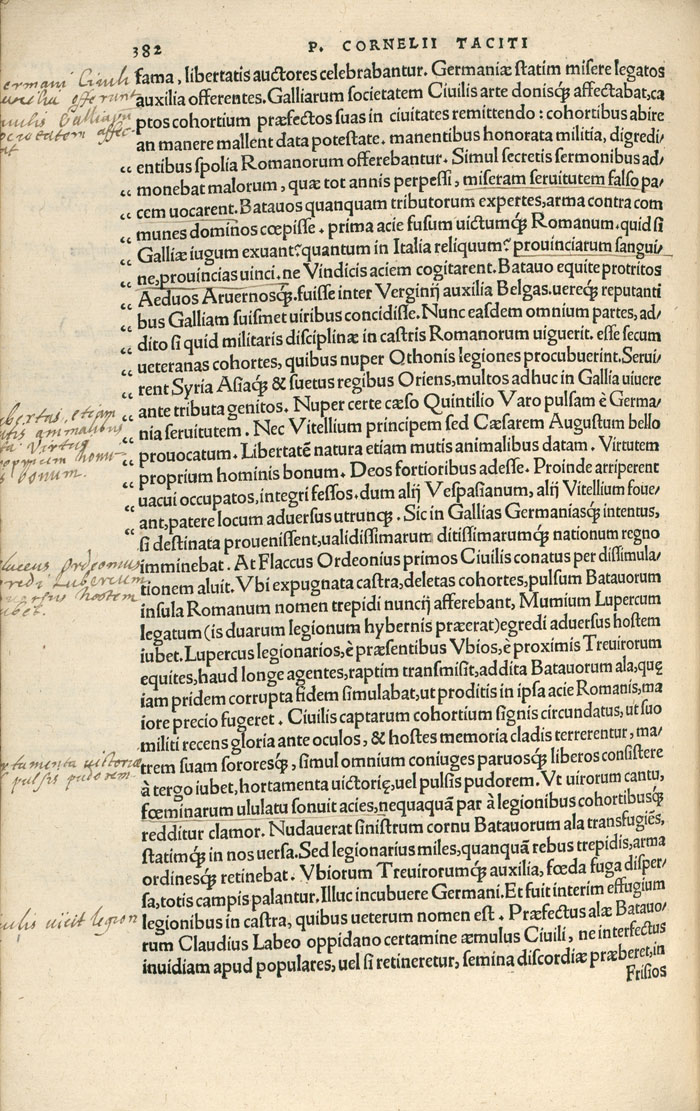 382
P. CORNELII TACITI
fama, libertatis auctores celebrabantur. Germaniæ statim misere legatos
auxilia offerentes. Galliarum societatem Ciuilis arte donisq; affectabat, ca
ptos cohortium præfectos suas in ciuitates remittendo : cohortibus abire
an manere mallent data potestate. manentibus honorata militia, digredi/
entibus spolia Romanorum offerebantur. Simul secretis sermonibus ad/
monebat malorum, quæ tot annis perpessi, miseram seruitutem falso pa/
cem uocarent. Batauos quanquam tributorum expertes, arma contra com
munes dominos cœpisse. prima acie fusum uictumq; Romanum. quid si
Galliæ iugum exuant? quantum in Italia reliquum? prouinciarum sangui/
ne, prouincias uinci. ne Vindicis aciem cogitarent. Batauo equite protritos
Aeduos Aruernosq;. fuisse inter Verginij auxilia Belgas. uereq; reputanti
bus Galliam suismet uiribus concidisse. Nunc easdem omnium partes, ad/
dito si quid militaris disciplinæ in castris Romanorum uiguerit. esse secum
ueteranas cohortes, quibus nuper Othonis legiones procubuerint. Serui/
rent Syria Asiaq; & suetus regibus Oriens, multos adhuc in Gallia uiuere
ante tributa genitos. Nuper certe cæso Quintilio Varo pulsam è Germa/
nia seruitutem. Nec Vitellium principem sed Cæsarem Augustum bello
prouocatum. Libertatē natura etiam mutis animalibus datam. Virtutem
proprium hominis bonum. Deos fortioribus adesse. Proinde arriperent
uacui occupatos, integri fessos. dum alij Vespasianum, alij Vitellium foue/
ant, patere locum aduersus utrunq;. Sic in Gallias Germaniasq; intentus,
si destinata prouenissent, ualidissimarum ditissimarumq; nationum regno
imminebat. At Flaccus Ordeonius primos Ciuilis conatus per dissimula/
tionem aluit. Vbi expugnata castra, deletas cohortes, pulsum Batauorum
insula Romanum nomen trepidi nuncij afferebant, Mumium Lupercum
legatum (is duarum legionum hybernis præerat) egredi aduersus hostem
iubet. Lupercus legionarios, è præsentibus Vbios, è proximis Treuirorum
equites, haud longe agentes, raptim transmisit, addita Batauorum ala, quę
iam pridem corrupta fidem simulabat, ut proditis in ipsa acie Romanis, ma
iore precio fugeret. Ciuilis captarum cohortium signis circundatus, ut suo
militi recens gloria ante oculos, & hostes memoria cladis terrerentur, ma/
trem suam sororesq;, simul omnium coniuges paruosq; liberos consistere
à tergo iubet, hortamenta uictorię, uel pulsis pudorem. Vt uirorum cantu,
fœminarum ululatu sonuit acies, nequaquā par à legionibus cohortibusq;
redditur clamor. Nudauerat sinistrum cornu Batauorum ala transfugiēs,
statimq; in nos uersa. Sed legionarius miles, quanquā rebus trepidis, arma
ordinesq; retinebat. Vbiorum Treuirorumq; auxilia, fœda fuga disper/
sa, totis campis palantur. Illuc incubuere Germani. Et fuit interim effugium
legionibus in castra, quibus ueterum nomen est. Præfectus alæ Batauo/
rum Claudius Labeo oppidano certamine æmulus Ciuili, ne interfectus
inuidiam apud populares, uel si retineretur, semina discordiæ præberet, in
Frisios
ermani Ciuili
auxilia offerunt
iuilis Galliarum
societatem affec-
at
libertas, etiam
mutis animalibus
Virtus
proprium homi-
s bonum.
flaccus Ordeonius
egredi Lubercum
aduersus hostem
iubet.
hortamenta uictoriæ
pulsis pudorem
iuilis uicit legion